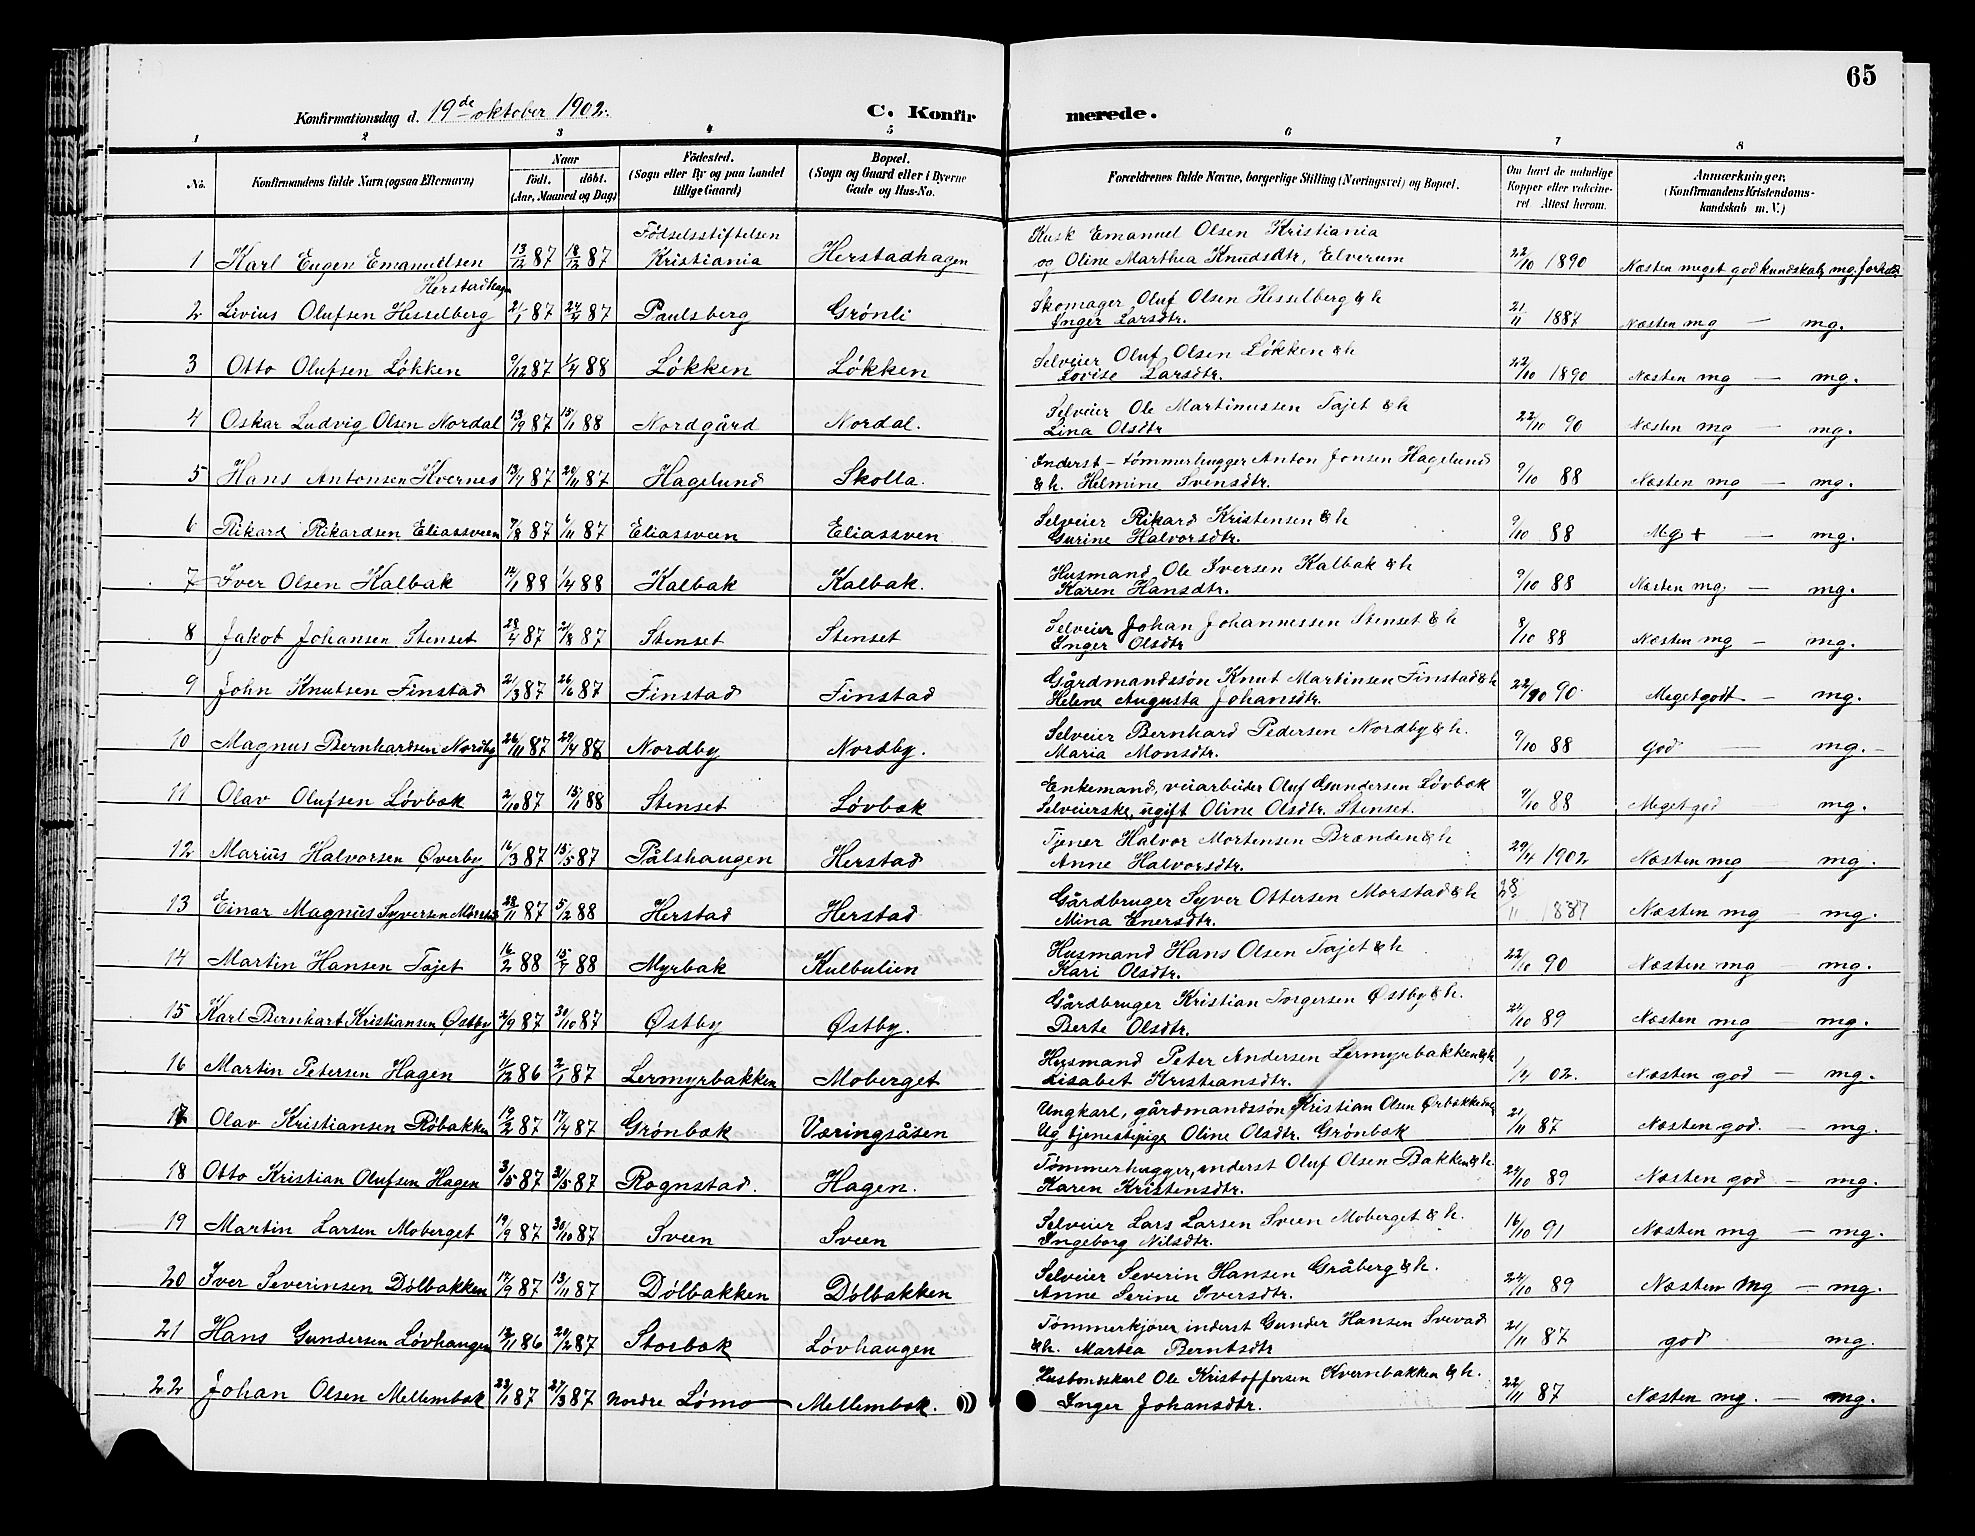 65
Konfirmationsdag d. 19de oktober 1902. C. Konfirmerede.
1 2 3 4 5 6 7 8
No. Konfirmandens fulde Navn (ogsaa Efternavn) Naar født. døbt. (Aar, Maaned og Dag) Fødested. (Sogn eller By og paa Landet tillige Gaard) Bopæl. (Sogn og Gaard eller i Byerne Gade og Hus-No. Forældrenes fulde Navne, borgerlige Stilling (Næringsvei) og Bopæl. Om havt de naturlige Kopper eller vaccineret Attest herom. Anmærkninger, (Konfirmandens Kristendomskundskab m. V.)
1 Karl Eugen Emanuelsen Herstadhagen 13/12 87 18/12 87 Fødselsstiftelsen Kristiania Herstadhagen Kusk Emanuel Olsen Kristiania
og Oline Marthea Knudsdtr, Elverum 22/10 1890 Næsten meget god kundskab, mg. forhold
2 Livius Olufsen Hesselberg 21/1 87 24/4 87 Paulsberg Grønli Skomager Oluf Olsen Hesselberg & h
Inger Larsdtr. 21/11 1887 Næsten mg — mg.
3 Otto Olufsen Løkken 9/12 87 1/4 88 Løkken Løkken Selveier Oluf Olsen Løkken & h
Lovise Larsdtr. 22/10 1890 Næsten mg — mg.
4 Oskar Ludvig Olsen Nordal 13/9 87 15/1 88 Nordgård Nordal. Selveier Ole Martinussen Tajet & h
Lina Olsdtr 22/10 90 Næsten mg — mg.
5 Hans Antonsen Kvernes 13/7 87 20/11 87 Hagelund Skolla. Inderst - tømmerhugger Anton Jonsen Hagelund
& h. Helmine Svensdtr. 9/10 88 Næsten mg — mg.
6 Rikard Rikardsen Eliassveen 7/8 87 6/11 87 Eliassveen Eliassven Selveier Rikard Kristensen & h
Gurine Halvorsdtr. 9/10 88 Mg + — mg.
7 Iver Olsen Kalbak 12/1 88 1/4 88 Kalbak Kalbak. Husmand Ole Iversen Kalbak & h
Karen Hansdtr. 9/10 88 Næsten mg — mg.
8 Jakob Johansen Stenset 28/4 87 21/8 87 Stenset Stenset Selveier Johan Johannessen Stenset & h
Inger Olsdtr 8/10 88 Næsten mg — mg.
9 John Knutsen Finstad 21/3 87 26/6 87 Finstad Finstad Gårdmandssøn Knut Martinsen Finstad & h
Helene Augusta Johansdtr. 22/10 90. Megetgodt — mg.
10 Magnus Bernhardsen Nordby 26/11 87 29/4 88 Nordby Nordby. Selveier Bernhard Pedersen Nordby & h.
Maria Monsdtr. 9/10 88 God — mg. —
11 Olav Olufsen Løvbæk 2/10 87 15/1 88 Stenset Løvbæk Enkemand, veiarbeider Oluf Gundersen Løvbæk
Selveierske, ugift Oline Olsdtr. Stenset. 9/10 88 Megetgod mg.
12 Marius Halvorsen Øverby 16/3 87 15/5 87 Pålshaugen Herstad Tjener Halvor Mortensen Brænden & h
Anne Halvorsdtr. 29/4 1902 Næsten mg mg.
13 Einar Magnus Syversen Morstad 28/11 87 5/2 88 Herstad Herstad Gårdbruger Syver Ottersen Morstad & h
Mina Enersdtr. 28/11 1887 Næsten mg — mg.
14 Martin Hansen Tajet 16/2 88 15/4 88 Myrbak Kulbulien Husmand Hans Olsen Tajet & h
Kari Olsdtr. 22/10 90 Næsten mg mg.
15 Karl Bernhart Kristiansen Østby 2/9 87 30/10 87 Østby Østby. Gårdbruger Kristian Torgersen Østby & h.
Berte Olsdtr. 24/10 89 Næsten mg mg.
16 Martin Petersen Hagen 11/12 86 2/1 87 Lermyrbakken Moberget Husmand Peter Andersen Lermyrbakken & h
Lisabet Kristiansdtr. 1/4 02. Næsten god — mg.
17 Olav Kristiansen Røbakken 19/2 87 17/4 87 Grønbæk Væringsåsen Ungkarl, gårdmandssøn Kristian Olsen
Ug tjenestepige Oline Olsdtr. Grønbæk 21/11 87 Næsten god. — mg.
18 Otto Kristian Olufsen Hagen 3/5 87 31/5 87 Rognstad. Hagen. Tømmerhugger, inderst Oluf Olsen Bakken & h.
Karen Kristensdtr. 24/10 89 Næsten god — mg.
19 Martin Larsen Moberget 19/9 87 30/10 87 Sveen Sveen Selveier Lars Larsen Sveen Moberget & h.
Ingeborg Nilsdtr. 16/10 91 Næsten mg — mg.
20 Iver Severinsen Dølbakken 17/9 87 13/11 87 Dølbakken Dølbakken Selveier Severin Hansen Gråberg & h.
Anne Serine Iversdtr. 24/10 89 Næsten Mg — mg.
21 Hans Gundersen Løvhaugen 12/11 86 20/2 87 Stosbæk Løvhaugen Tømmerkjører, inderst Gunder Hansen Svevad
& h. Martea Berntsdtr 21/11 87 god mg.
22 Johan Olsen Mellembæk 22/1 87 27/3 87 Nordre Lømo Mellembæk. Husbondskarl Ole Kristoffersen Kvernbakken & h.
Inger Johansdtr. 22/11 87 Næsten mg. — mg.